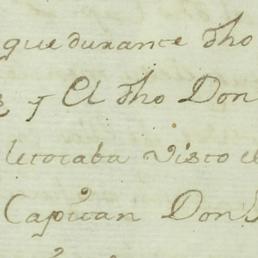 que durante dho
y El dho Don
letocaba visto e
Capitan Don